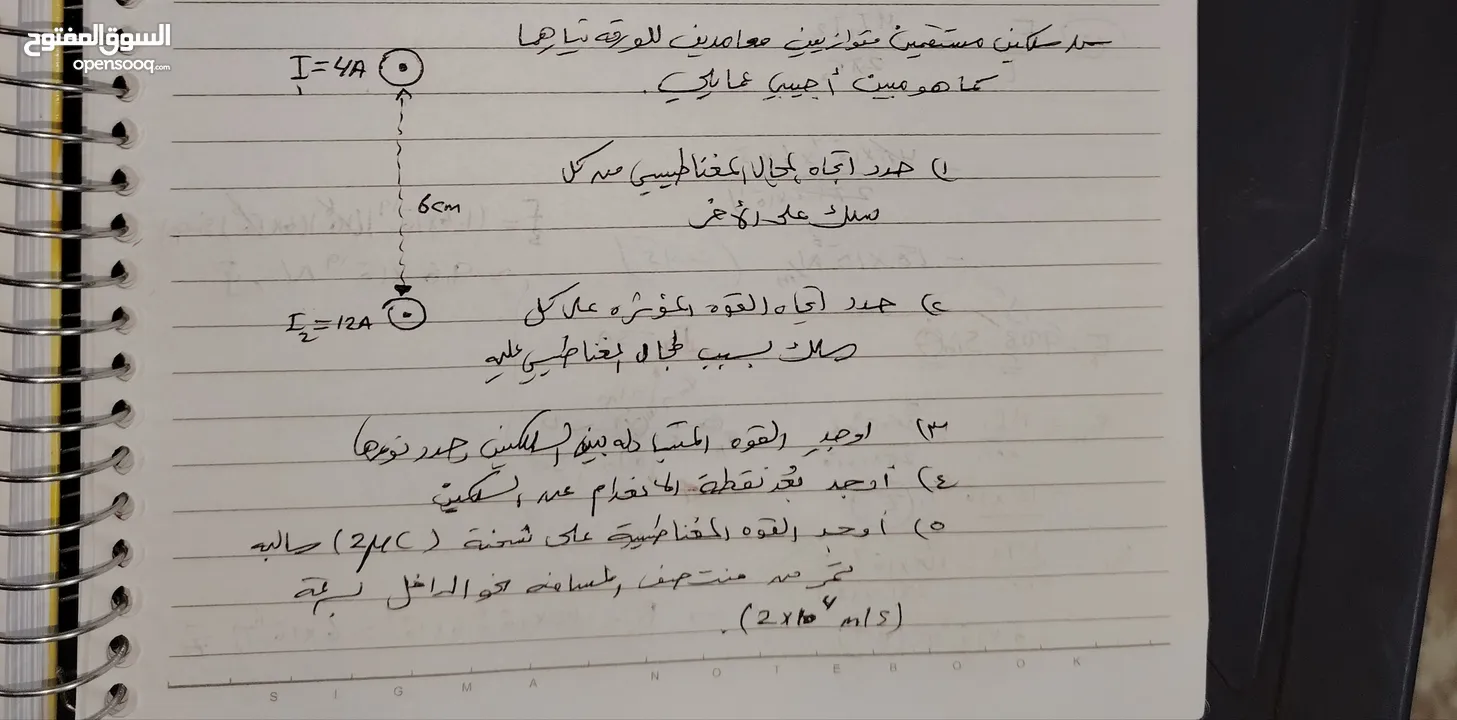 السوق المفتوح
opensooq.com
سلكين مستقيمين متوازيين معامدين للورقة تيارهما
كما هو مبين أجيبي عما يلي .
I₁=4A
6cm
I₂=12A
١) حدد اتجاه المجال المغناطيسي من كل
سلك على الأخر
٢) حدد اتجاه القوه المؤثره على كل
سلك بسبب المجال المغناطيسي عليه
٣) اوجد القوه المتبادله بين السلكين وحدد نوعها
٤) أوجد بُعد نقطة الانعدام عن السلكين
٥) أوجد القوه المغناطيسية على شحنة (2μC) سالبه
تمر من منتصف المسافه نحو الداخل بسرعة
(2x10⁴ m/s).
SIGMA NOTEBOOK